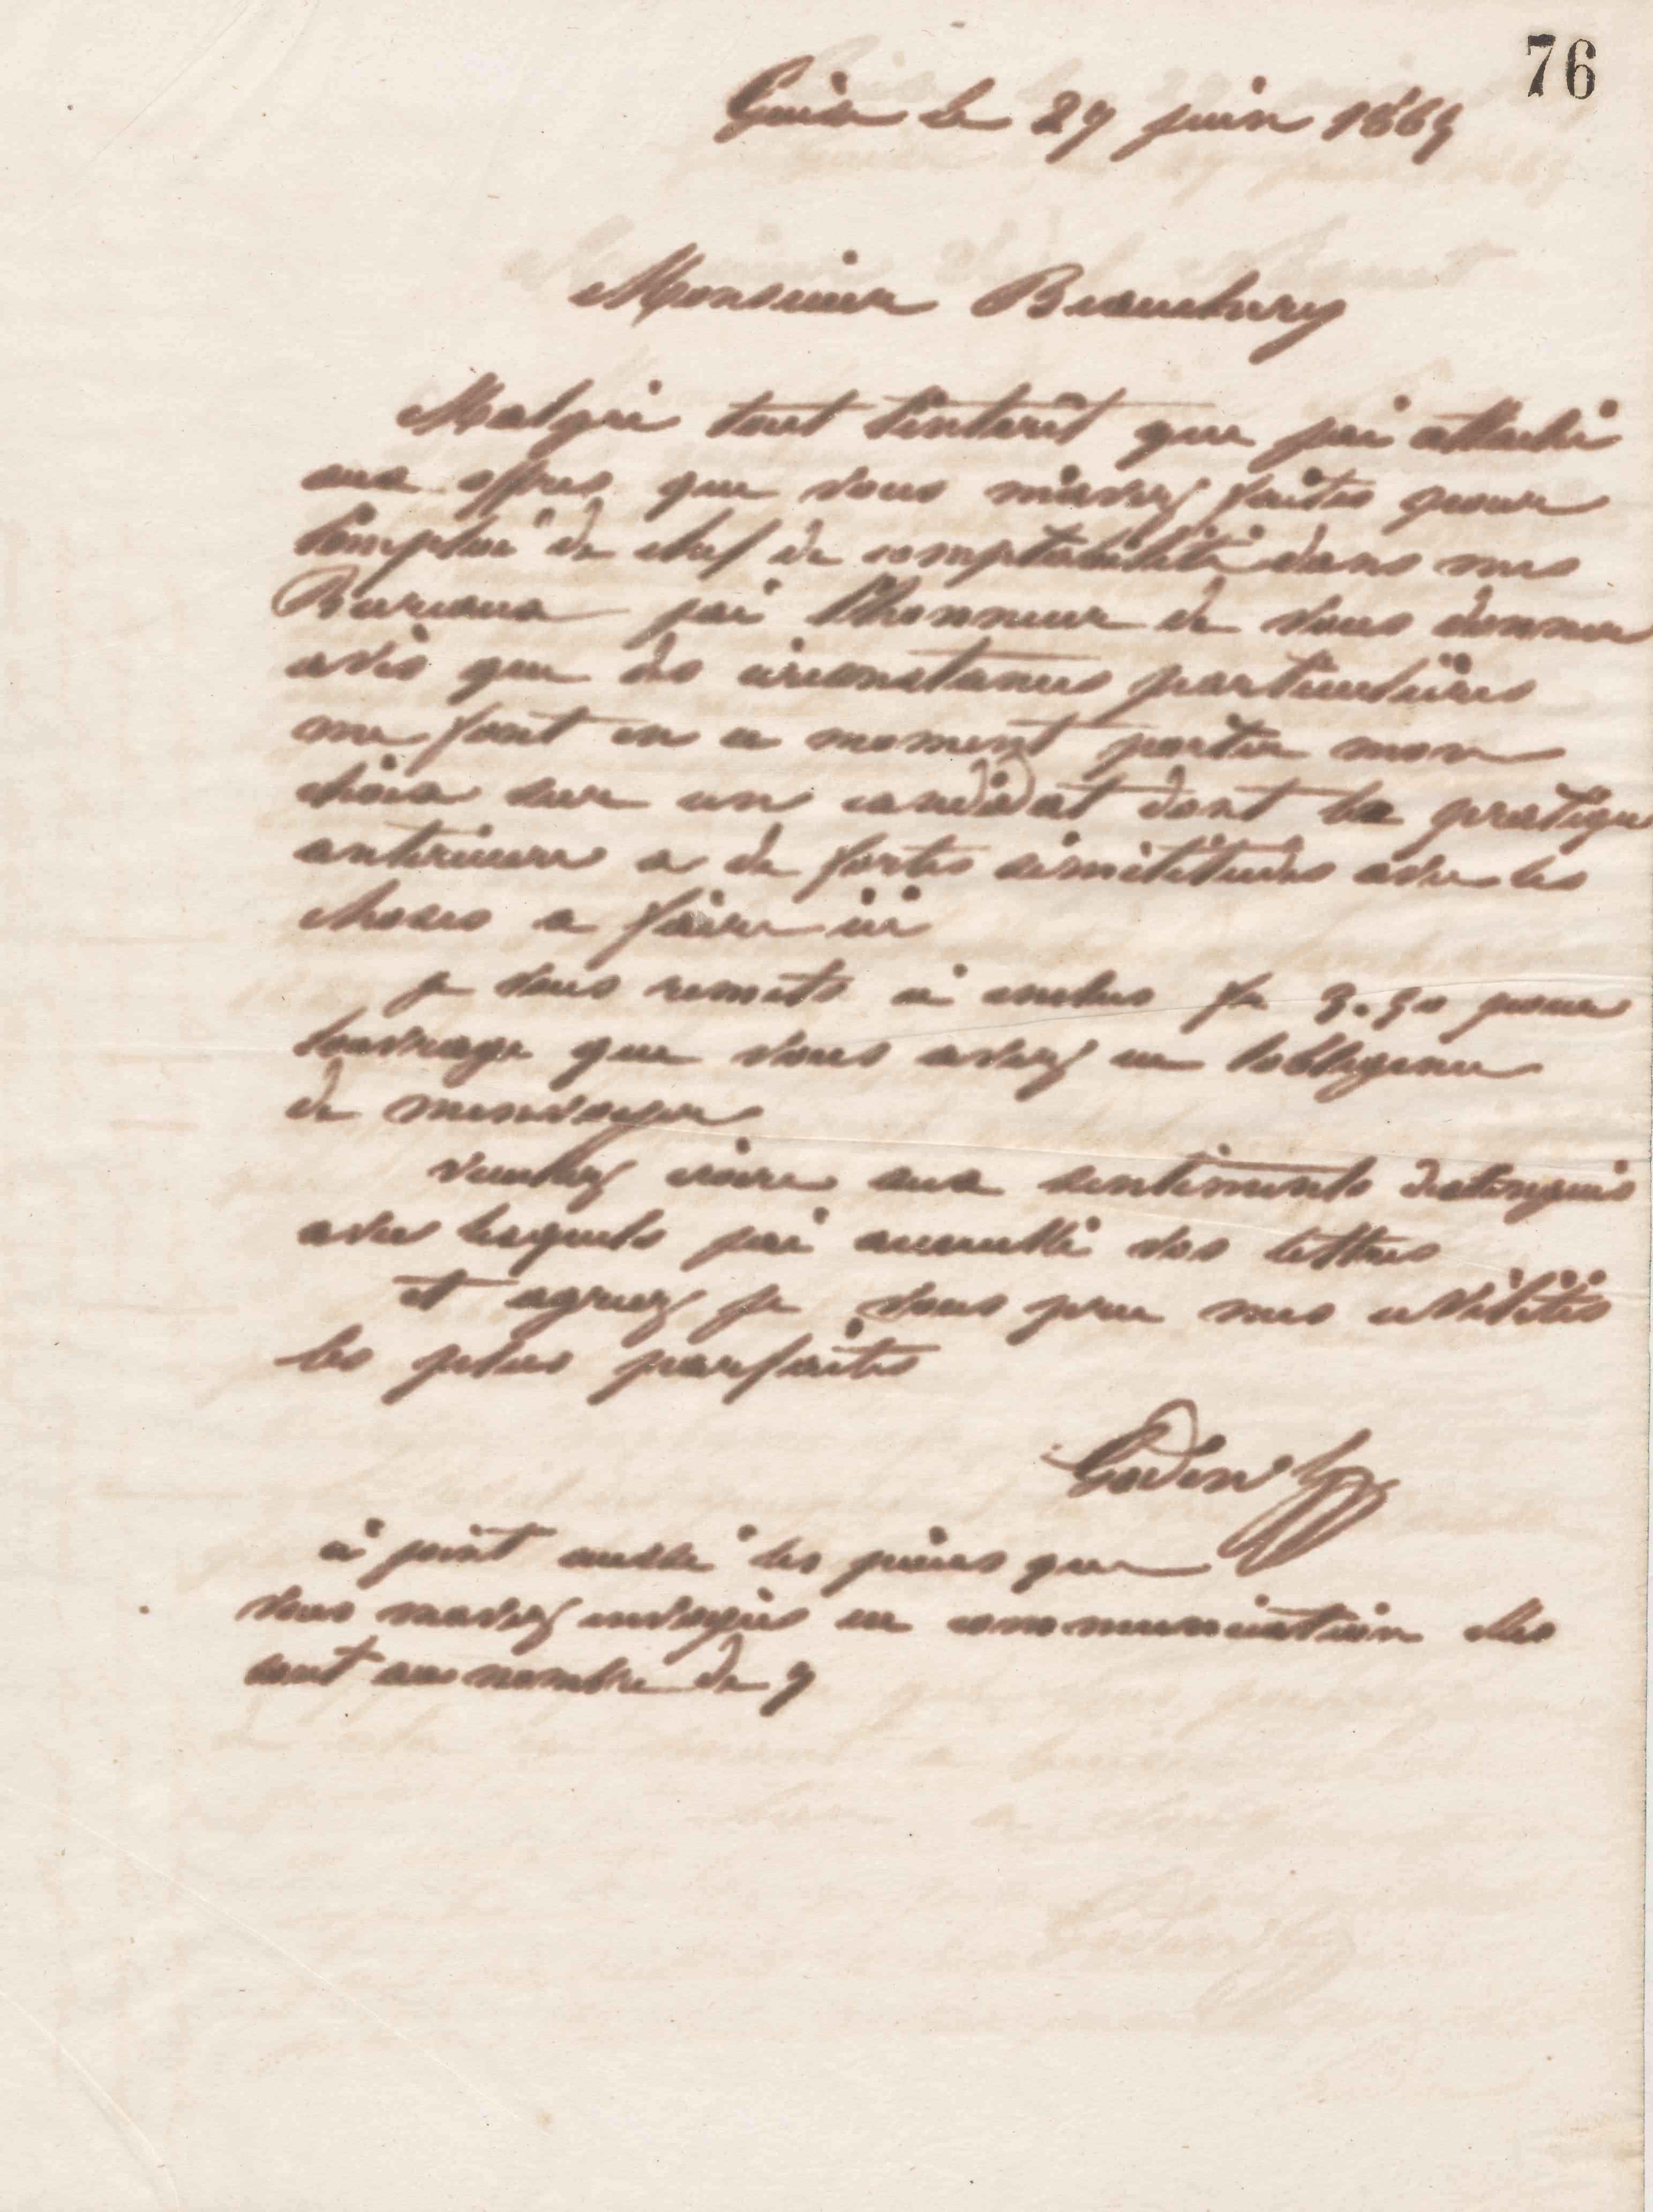 76
Guise le 27 juin 1865
Monsieur Beauchery
Malgré tout l'intérêt que jai attaché
aux offres que vous m'avez faites pour
l'emploi de chef de comptabilité dans mes
Bureaux jai l'honneur de vous donner
avis que des circonstances particulières
me font en ce moment porter mon
choix sur un candidat dont la pratique
antérieure a de fortes similitudes avec les
choses a faire ici
je vous remets ci inclus fr 3.50 pour
louvrage que vous avez eu lobligeance
de menvoyer
veuillez croire aux sentiments distingués
avec lesquels jai accueilli vos lettres
et agréez je vous prie mes civilités
les plus parfaites
Godin
ci joint aussi les pièces que
vous mavez envoyées en communication elles
sont au nombre de 7